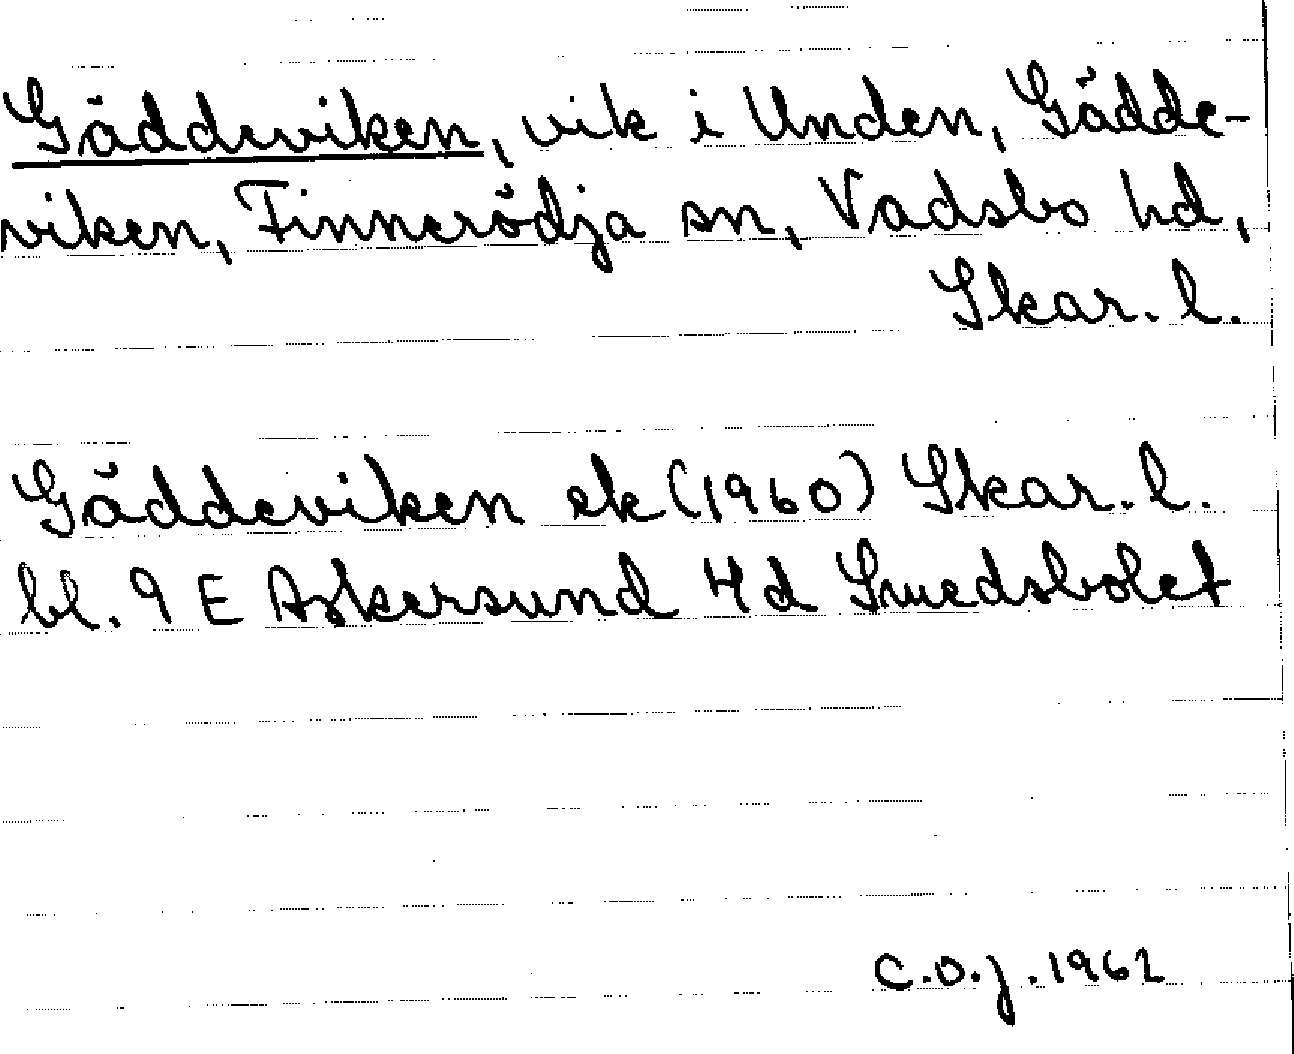 Gäddeviken, vik i Unden, Gädde-
viken, Finnerödja sn, Vadsbo hd,
Skar. l.
Gäddeviken ek (1960) Skar. l.
bl. 9 E Askersund 4 d Smedsbolet
C.O.J. 1962